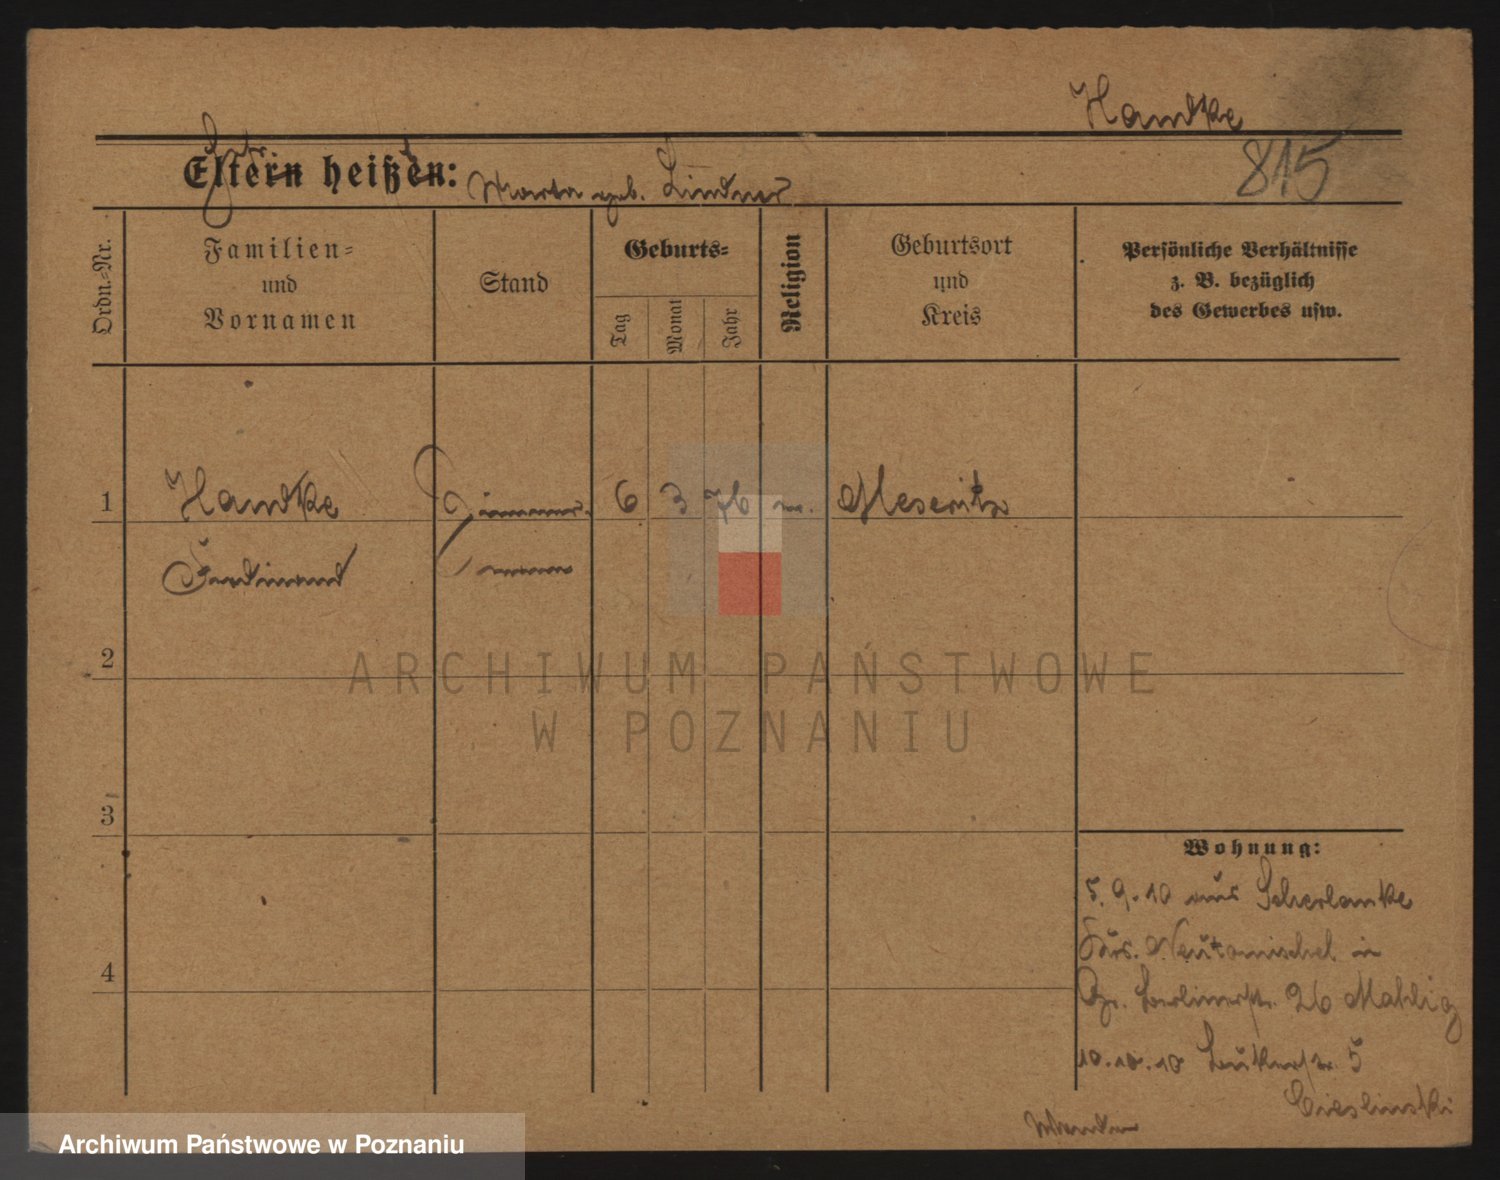 Handke
815
Eltern heißen: Marta geb. Lindner
Ordn.-Nr.
Familien-
und
Vornamen
Stand
Geburts-
Tag
Monat
Jahr
Religion
Geburtsort
und
Kreis
Persönliche Verhältnisse
z. B. bezüglich
des Gewerbes usw.
1 Handke Zimmer- 6 3 76 Meseritz
Ferdinand mann
2
3
4
Wohnung:
5.9.10 aus Scherlanke
Neutomischel in
Berlinerstr. 26 Mahlig
10.10.10 5
Cieslinski
ARCHIWUM PAŃSTWOWE
W POZNANIU
Archiwum Państwowe w Poznaniu